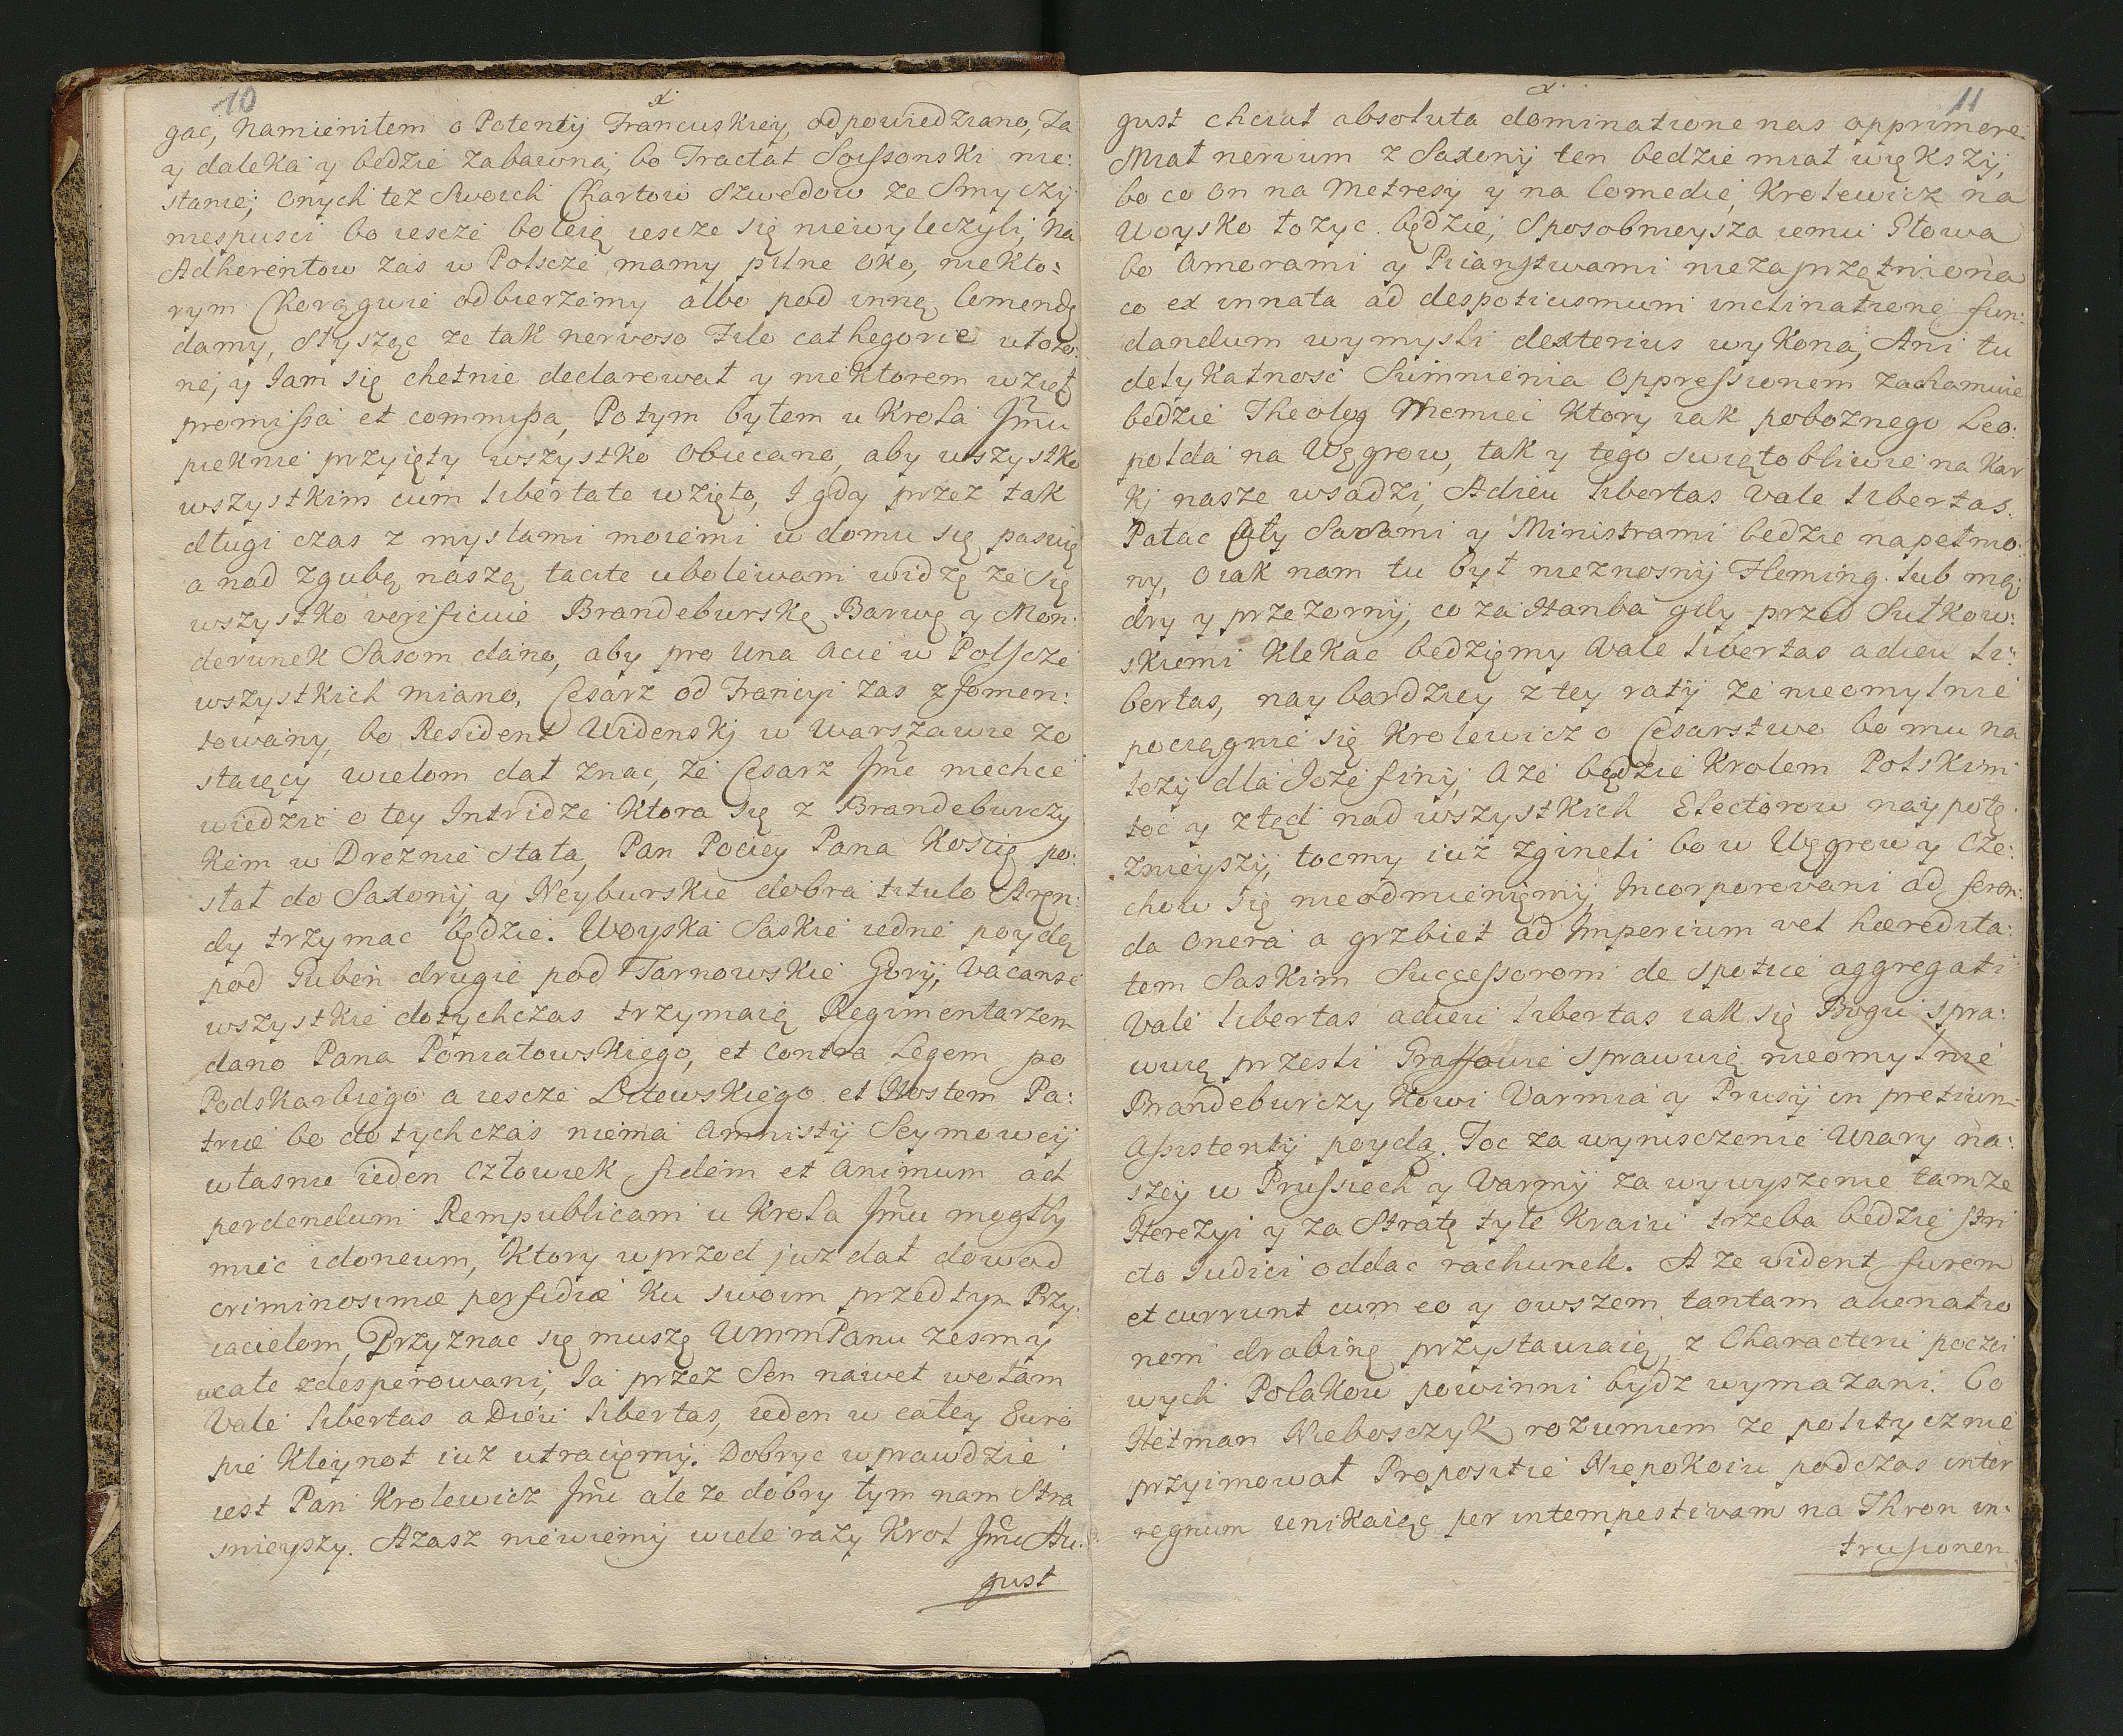 10
gac, Namienitem o Potentij Francuskiey, odpowiedziano, Ta
y daleka y bedzie zabawna, bo Tractat Soissonski nie:
stanie, onych tez Swoich Chartow Szwedow ze Smyczy
niespusci bo iescze boleią iescze się niewyleczyli, Na
Adherentow zas w Polscze mamy pilne oko, niekto:
rym Chorągwie odbierzemy albo pod inną Comendę
damy, Słysząc ze tak nervoso Filo cathegorie ułozo:
ne, y Jam się chetnie declarował y niektorem wziął
promissa et commissa, Potym byłem u Krola Jmci
pieknie przyięty wszystko obiecano, aby wszystko
wszystkim cum libertate wzięto, I gdy przez tak
długi czas z myslami moiemi w domu się pasuię
a nad zgubą naszą tacite ubolewam widzę ze się
wszystko verificuie Brandeburską Barwę y Mon:
derunek Sasom dano, aby pro una acie w Polscze
wszystkich miano, Cesarz od Francyi zas zfomen:
towany, bo Resident Widenskj w Warszawie zo
staięcy wielom dał znac, ze Cesarz Jmc niechce
wiedzic o tey Intridze Ktora się z Brandeburczy
kiem w Dreznie stała, Pan Pociey Pana Kosię po:
słał do Saxonij y Neyburskie dobra titulo Aręn:
dy trzymac będzie. Woyska Saskie iedne poydą
pod Guben drugie pod Tarnowskie Gorij, Vacanse
wszystkie dotychczas trzymaią Regimentarzem
dano Pana Poniatowskiego, et contra Legem po
Podskarbiego a iescze Litewskiego et Hostem Pa:
triæ bo dotychczas niema Amnistij Seymowcij
własnie ieden człowiek fidem et animum ad
perdendum Rempublicam u Krola Jmci mogłby
miec idoneum, Ktory wprzod juz dał dowod
criminosimæ perfidiæ ku swoim przedtym Przy:
iacielom, Przyznac się muszę UmmPanu zesmy
wcale zdesperowani, Ja przez Sen nawet wołam
Vale libertas adieu libertas, ieden w całey Euro
pie Kleynot iuz utracięmy. Dobryc wprawdzie
iest Pan Krolewicz Jmc ale ze dobry tym nam Stra
snieyszy. Azasz niewiemy wiele razy Krol Jmc Au:
gust
11
gust chciał absoluta dominatione nas opprimere
Miał nervum z Saxonij ten bedzie miał większij,
bo co on na Metresy y na Comedie, Krolewicz na
Woysko łozyc będzie, Sposobnieysza iemu Głowa
bo Amorami y Pianstwami niezaprzętniona
co ex innata ad despoticismum inclinatione fun:
dandum wymysli dexterius wykona, Ani tu
delykatnosc Sumnienia oppressionem zachamuie
bedzie Theolog Niemiec Ktory iak poboznego Leo:
polda na Węgrow, tak y tego swiętobliwie na Kar
kj nasze wsadzi, Adieu libertas Vale libertas.
Pałac Cały Sasami y Ministrami bedzie napełnio:
ny, o iak nam tu był nieznosnij Fleming lub mą
dry y przezornij, co za Hanba gdy przed Sułkow:
skiemi Klekac bedzięmy Vale libertas adieu li:
bertas, naybardziey z tey ratij ze nieomylnie
pociągnie się Krolewicz o Cesarstwo bo mu na
lezy dla Jozefinij, A ze będzie Krolem Polskim
toc y ztąd nad wszystkich Electorow naypotę:
znieyszij, tocmy iuz zgineli bo w Węgrow y Cze:
chow się nieodmienięmij Incorporowani ad feren:
da onera a grzbiet ad Imperium vel hæredita:
tem Saskim Successorom despotice aggregati
Vale libertas adieu libertas iak się Bogu spra:
wuią przesli Grassowie sprawuię nieomylnie
Brandeburczykowi Varmia y Prusij in pretium
Assistentij poydą. Toc za wynisczenie Wiary na:
szey w Prussiech y Varmij za wywyszenie tamze
Herezyi y za Stratę tyle Kraiu trzeba bedzie stri
cto Judici oddac rachunek. A ze vident furem
et currunt cum eo y owszem tantam alienatio
nem drabinę przystawiaią, z Characteru poczci
wych Polakow powinni bydz wymazani. Co
Hetman Nieboszczyk rozumiem ze politycznie
przyimował Propositie Niepokoiu podczas inter
regnum unikaiąc per intempestivam na Thron in:
trusionem